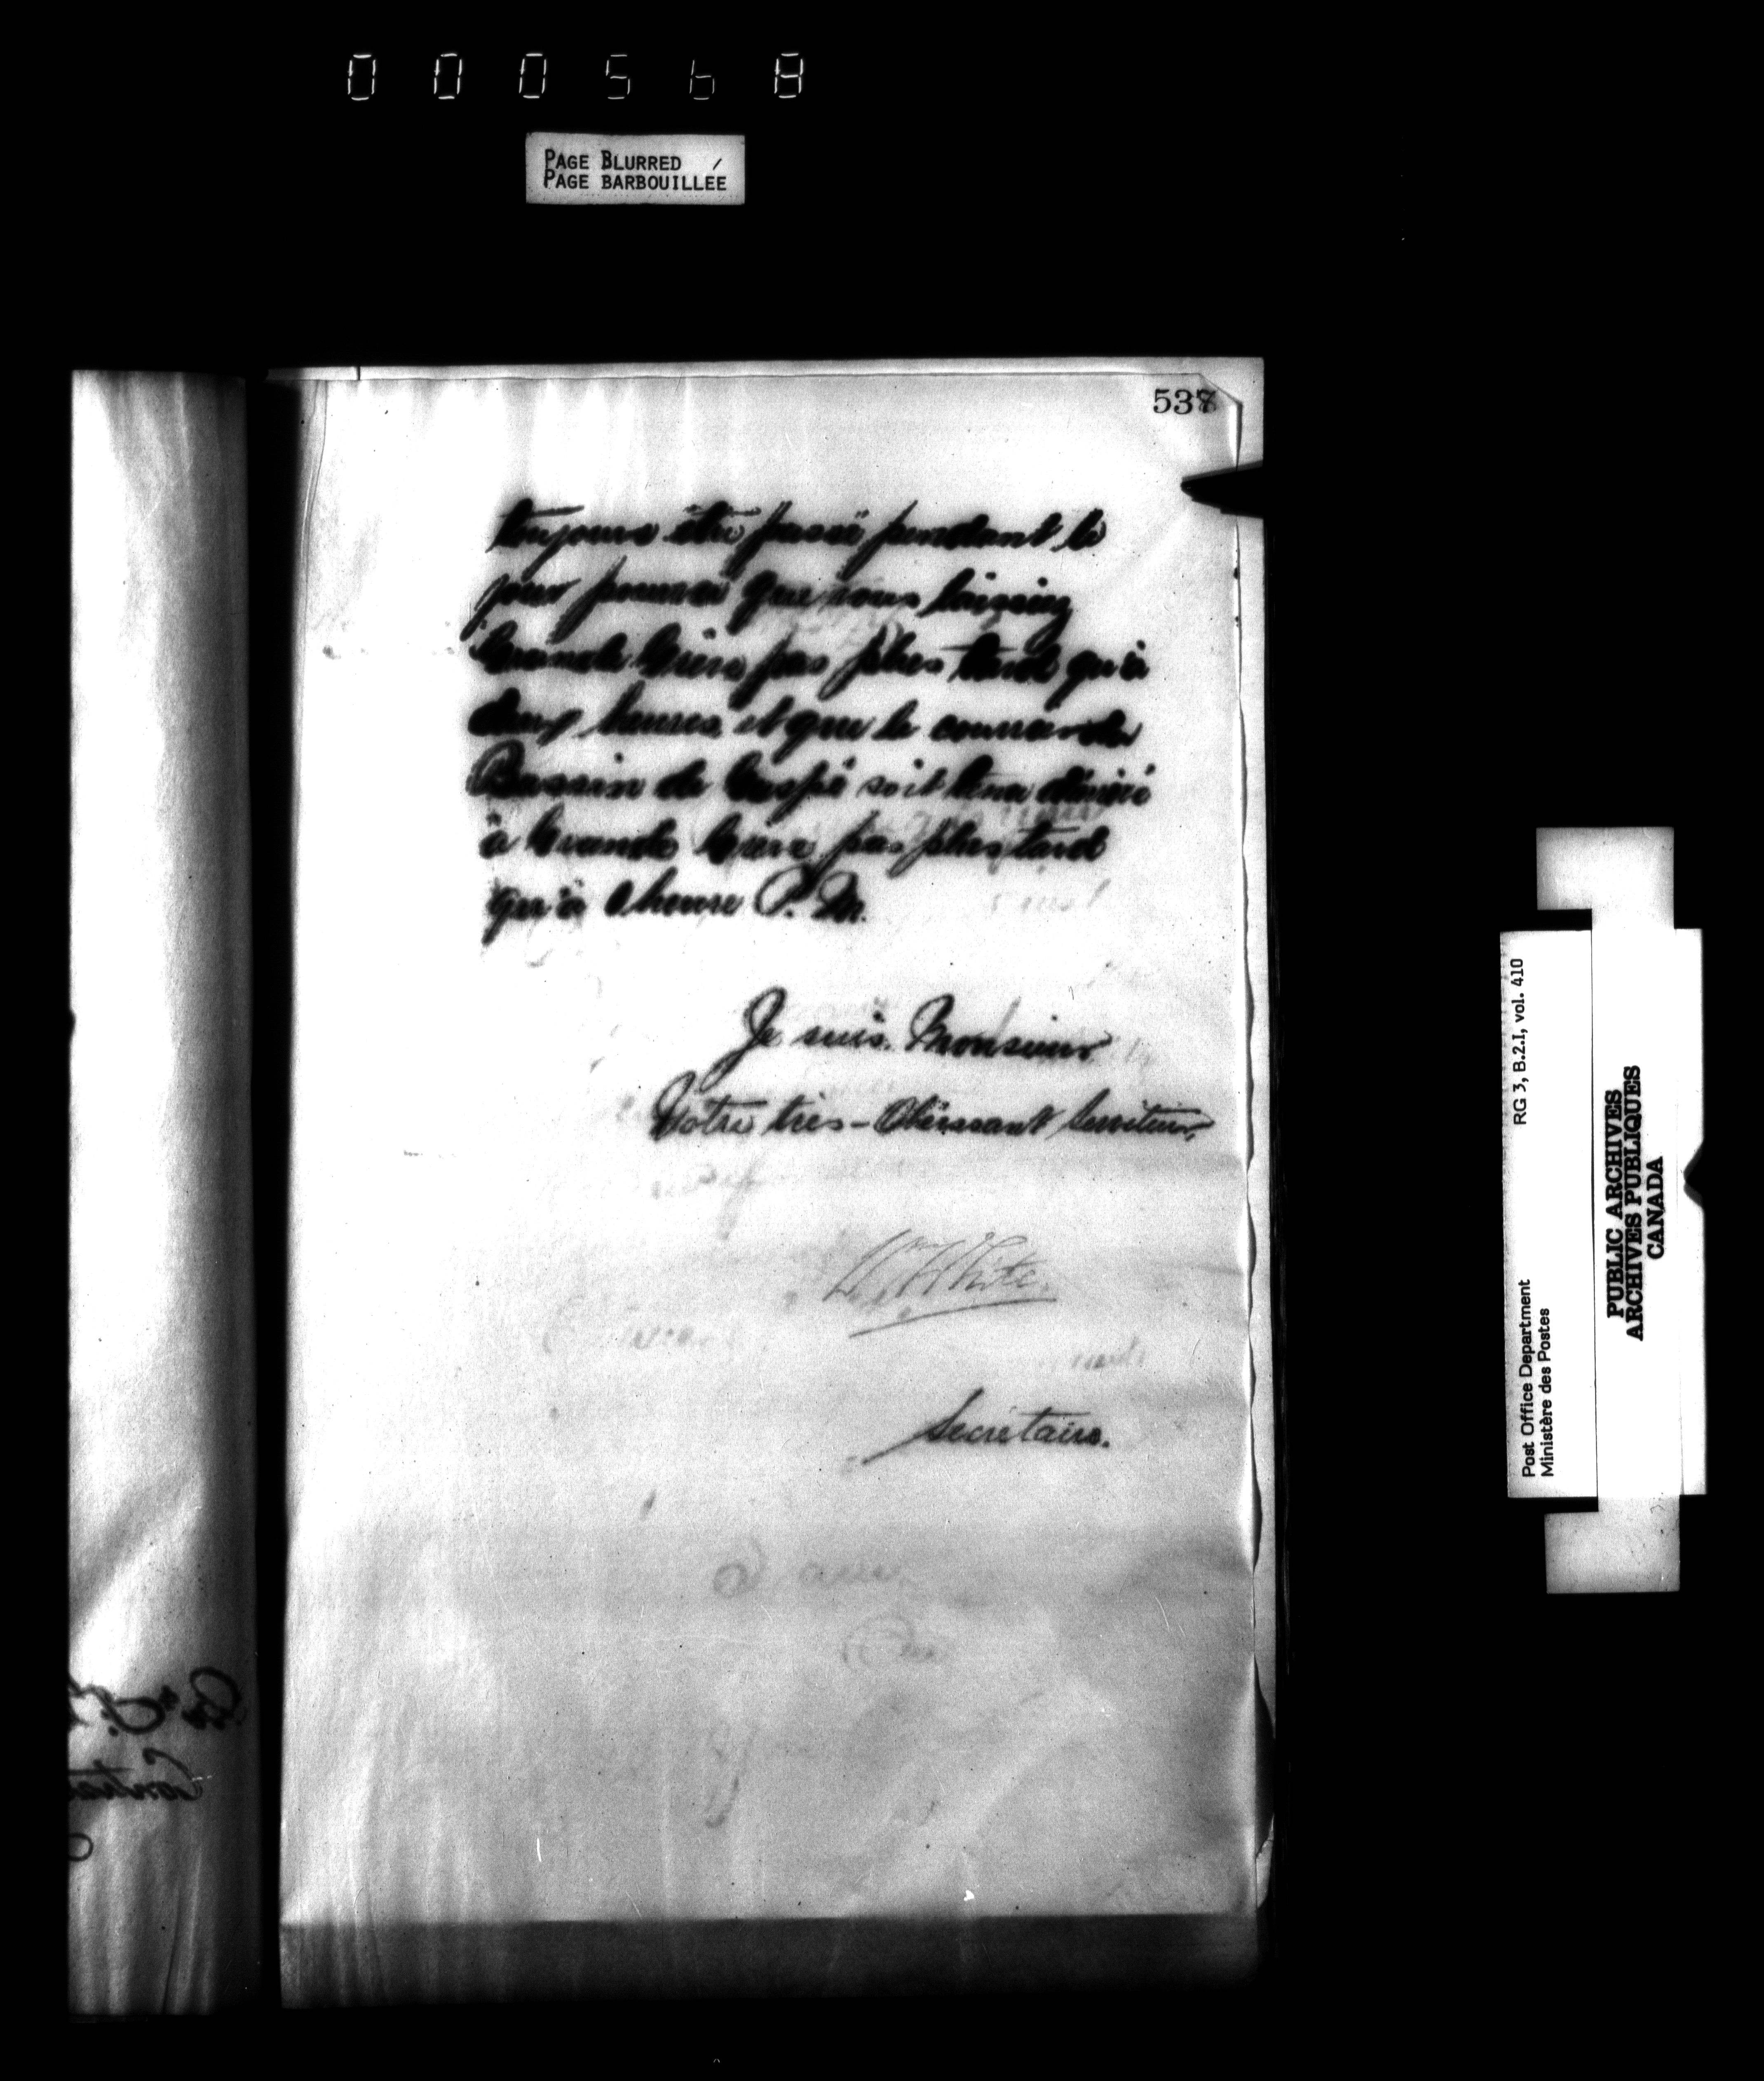 000568
PAGE BLURRED
PAGE BARBOUILLÉE
537
toujours être passé pendant le
jour pourvu que vous laissiez
Grande Grève pas plus tard qu'à
deux heures, et que le courrier du
Bassin de Gaspé soit tenu d'arrivé
à Grande Grève pas plus tard
qu'à heure P. M.
Je suis. Monsieur
Votre très-Obéissant Serviteur,
Wm White
Secretaire.
RG 3, B.2.I, vol. 410
Post Office Department
Ministère des Postes
PUBLIC ARCHIVES
ARCHIVES PUBLIQUES
CANADA